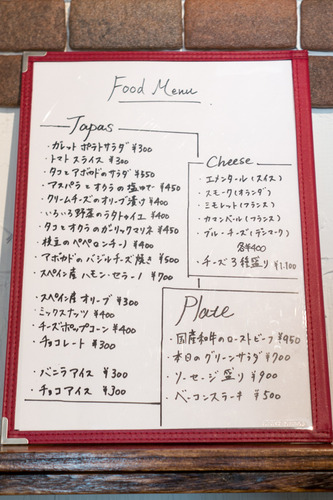 Food Menu
Tapas
・カレット ポテトサラダ ¥300
・トマト スライス ¥300
・タコとアボカドのサラダ ¥550
・アスパラとオクラの塩ゆで ¥450
・クリームチーズのオリーブ漬け ¥400
・いろいろ野菜のラタトゥイユ ¥400
・タコとオクラのガーリックマリネ ¥450
・枝豆のペペロンチーノ ¥400
・アボカドのバジルチーズ焼き ¥500
・スペイン産 ハモン・セラーノ ¥700
・スペイン産 オリーブ ¥300
・ミックスナッツ ¥400
・チーズポップコーン ¥400
・チョコレート ¥300
・バニラアイス ¥300
・チョコアイス ¥300
Cheese
・エメンタール(スイス)
・スモーク(オランダ)
・ミモレット(フランス)
・カマンベール(フランス)
・ブルーチーズ(デンマーク)
各¥400
・チーズ3種盛り ¥1.100
Plate
・国産和牛のローストビーフ ¥950
・本日のグリーンサラダ ¥700
・ソーセージ盛り ¥900
・ベーコンステーキ ¥500